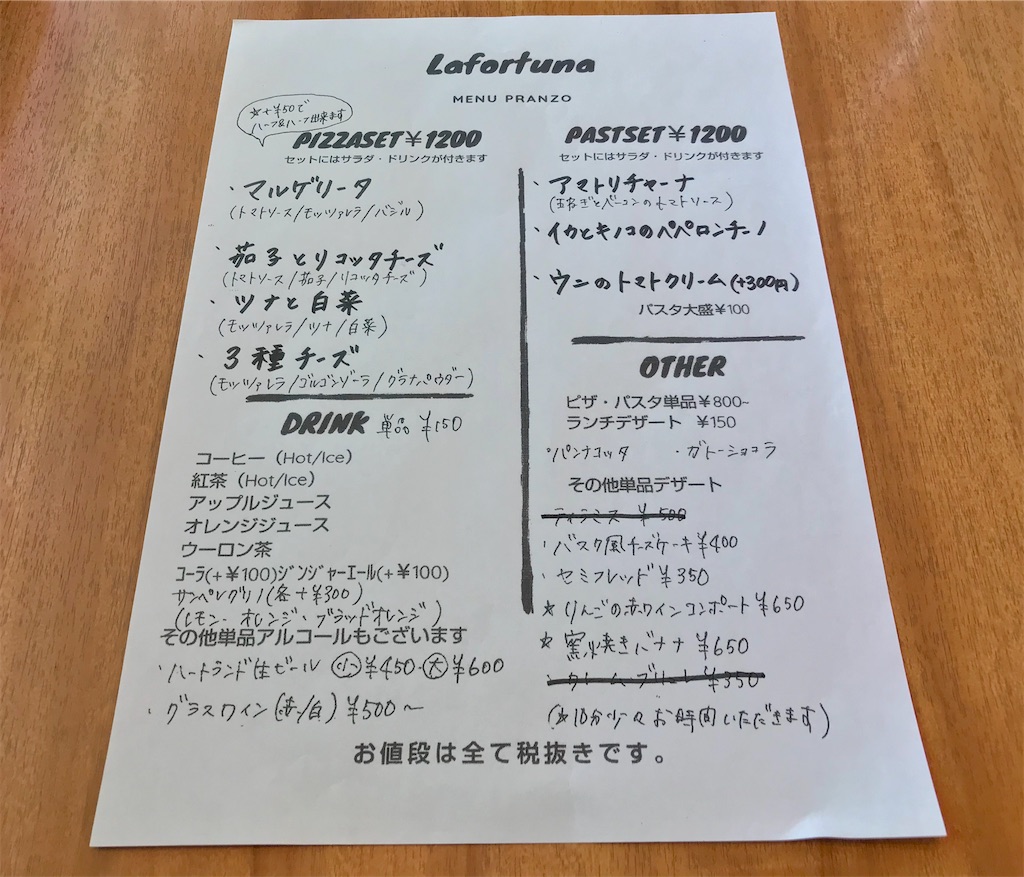 Lafortuna
MENU PRANZO
☆+¥50で
ハーフ&ハーフ出来ます
PIZZASET¥1200
セットにはサラダ・ドリンクが付きます
・マルゲリータ
(トマトソース/モッツァレラ/バジル)
・茄子とリコッタチーズ
(トマトソース/茄子/リコッタチーズ)
・ツナと白菜
(モッツァレラ/ツナ/白菜)
・3種チーズ
(モッツァレラ/ゴルゴンゾーラ/グラナパウダー)
DRINK 単品 ¥150
コーヒー(Hot/Ice)
紅茶(Hot/Ice)
アップルジュース
オレンジジュース
ウーロン茶
コーラ(+¥100)ジンジャーエール(+¥100)
サンペレグリノ(各+¥300)
(レモン・オレンジ・ブラッドオレンジ)
その他単品アルコールもございます
・ハートランド生ビール 小¥450・大¥600
・グラスワイン(赤/白) ¥500〜
PASTSET¥1200
セットにはサラダ・ドリンクが付きます
・アマトリチャーナ
(玉ねぎとベーコンのトマトソース)
・イカとキノコのペペロンチーノ
・ウニのトマトクリーム(+300円)
パスタ大盛¥100
OTHER
ピザ・パスタ単品¥800~
ランチデザート ¥150
・パンナコッタ ・ガトーショコラ
その他単品デザート
ティラミス ¥500
・バスク風チーズケーキ¥400
・セミフレッド¥350
☆りんごの赤ワインコンポート¥650
☆窯焼きバナナ¥650
・クレームブリュレ ¥350
(☆10分少々お時間いただきます)
お値段は全て税抜きです。